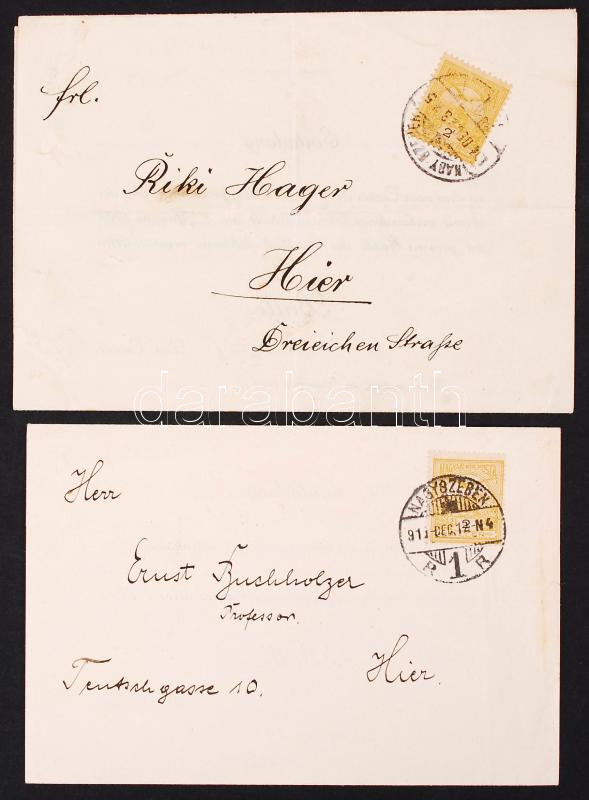 frl.
Riki Hager
Hier
Dreieichen Straße
darabanth
Herr
NAGYSZEBEN
911 DEC. 12 N4
R 1 R
Ernst Buchholzer
Professor.
Hier.
Teutschgasse 10.